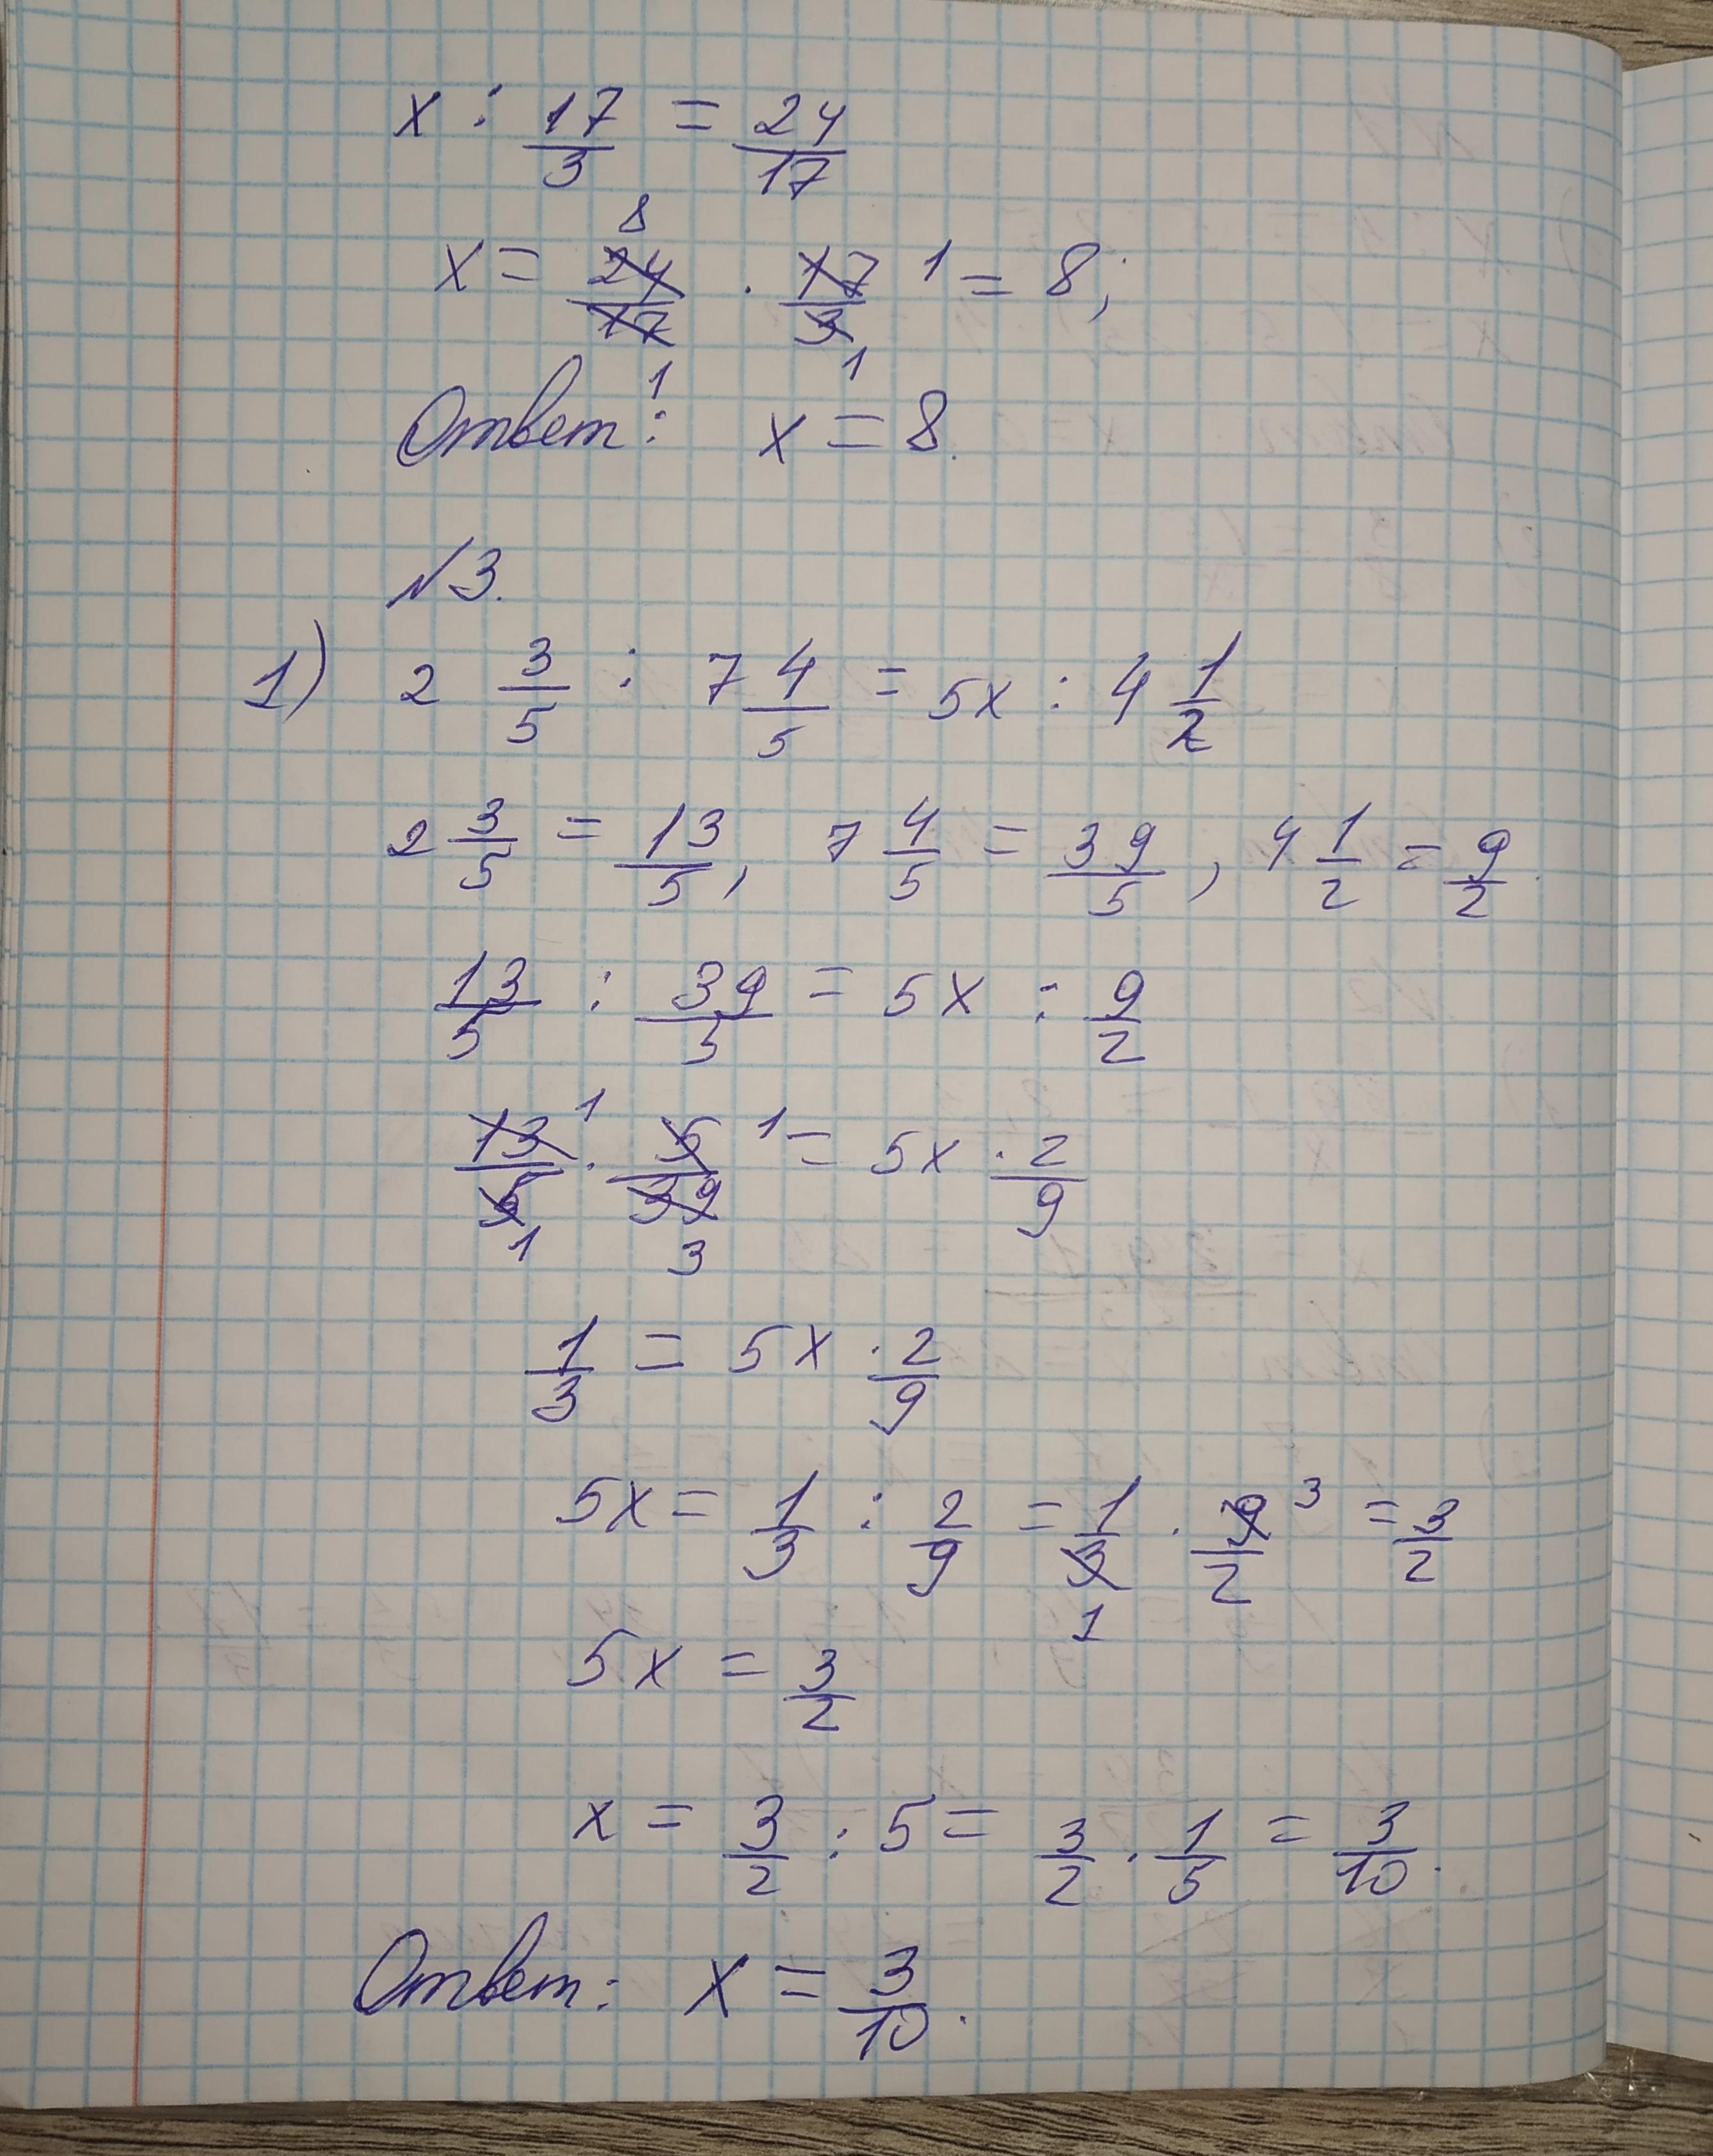 x : 17/3 = 24/17
x = 24/17 · 17/3 = 8;
Ответ: x = 8.
№3.
1) 2 3/5 : 7 4/5 = 5x : 4 1/2
2 3/5 = 13/5, 7 4/5 = 39/5, 4 1/2 = 9/2.
13/5 : 39/5 = 5x : 9/2
13/5 · 5/39 = 5x · 2/9
1/3 = 5x · 2/9
5x = 1/3 : 2/9 = 1/3 · 9/2 = 3/2
5x = 3/2
x = 3/2 : 5 = 3/2 · 1/5 = 3/10.
Ответ: x = 3/10.